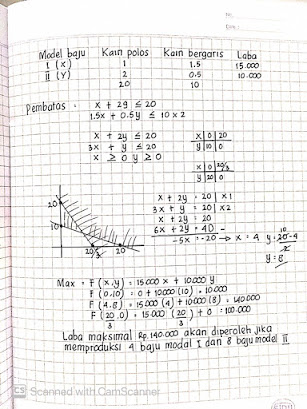 No.
Date:
Model baju Kain polos Kain bergaris Laba
I (X) 1 1.5 15.000
II (Y) 2 0.5 10.000
20 10
Pembatas : x + 2y ≤ 20
1.5x + 0.5y ≤ 10 x 2
x + 2y ≤ 20
3x + y ≤ 20
x ≥ 0 y ≥ 0
x 0 20
y 10 0
x 0 20/3
y 20 0
20
10
20/3
20
x + 2y = 20 | x1
3x + y = 20 | x2
x + 2y = 20
6x + 2y = 40 -
-5x = -20 → x = 4
y = 20-4
2
y = 8
Max = F(x,y) = 15.000 x + 10.000 y
F(0,10) = 0 + 10.000 (10) = 10.000
F(4.8) = 15.000 (4) + 10.000 (8) = 140.000
F(20/3,0) = 15.000 (20/3) + 0 = 100.000
Laba maksimal Rp. 140.000 akan diperoleh jika
memproduksi 4 baju modal I dan 8 baju model II
CS Scanned with CamScanner